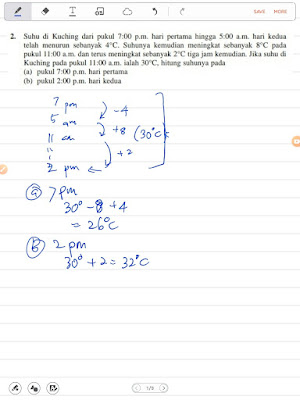 SAVE
MORE
2. Suhu di Kuching dari pukul 7:00 p.m. hari pertama hingga 5:00 a.m. hari kedua
telah menurun sebanyak 4°C. Suhunya kemudian meningkat sebanyak 8°C pada
pukul 11:00 a.m. dan terus meningkat sebanyak 2°C tiga jam kemudian. Jika suhu di
Kuching pada pukul 11:00 a.m. ialah 30°C, hitung suhunya pada
(a) pukul 7:00 p.m. hari pertama
(b) pukul 2:00 p.m. hari kedua
7 pm
-4
5 am
+8
11 am (30°C)
+2
2 pm
(a) 7pm
30° - 8 + 4
= 26°C
(b) 2pm
30° + 2 = 32°C